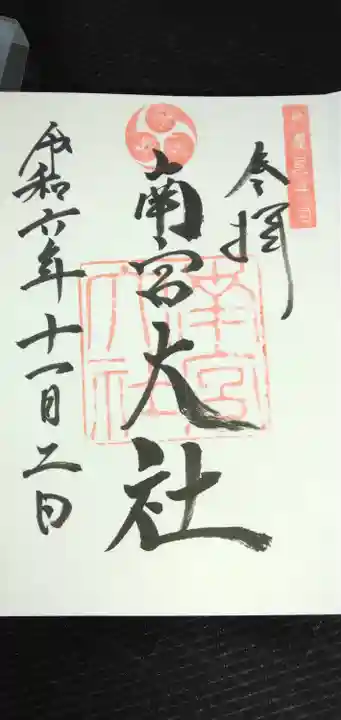 奉拝
南宮大社
南宮大社
令和六年十一月二日